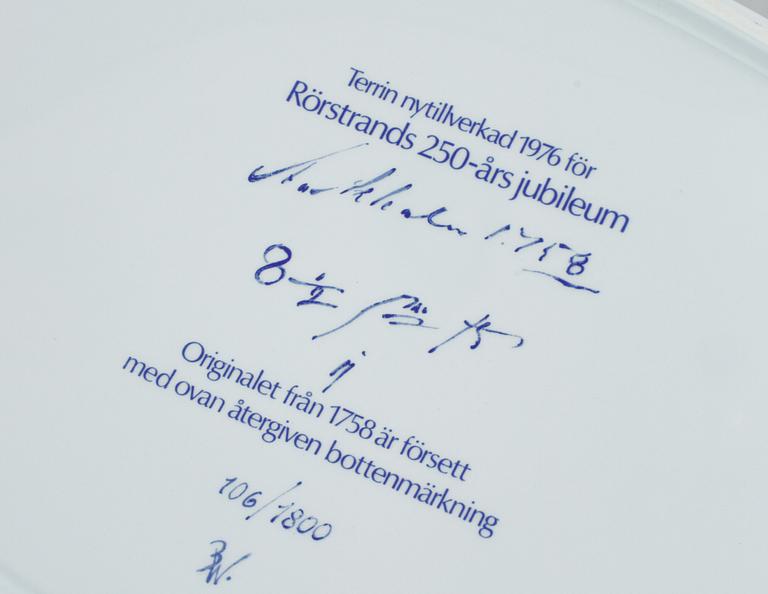 Terrin nytillverkad 1976 för
Rörstrands 250-års jubileum
Stockholm 1758
8 1/2
Originalet från 1758 är försett
med ovan återgiven bottenmärkning
106/1800
BW.